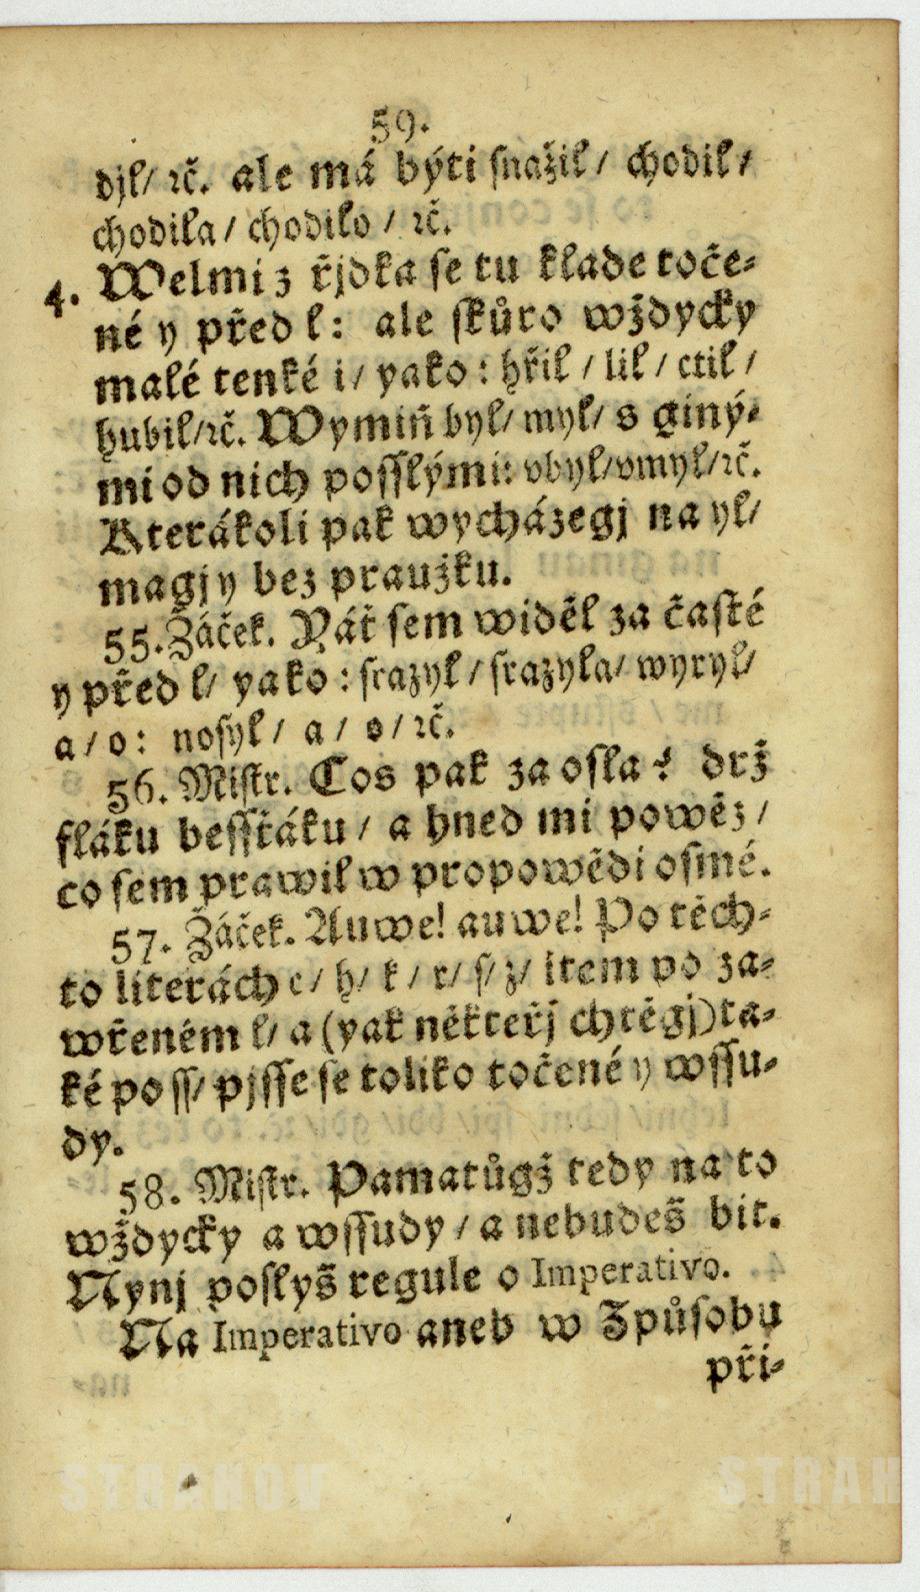 59.
djl/ ꝛč. ale má býti snažil / chodil /
chodila / chodilo / ꝛč.
4. Welmi z řjdka se tu klade toče-
né y před l: ale skůro wždycky
malé tenké i/ yako : hřil / lil / ctil /
hubil/ꝛč. Wymiň byl/ myl/ s giný-
mi od nich posslými: vbyl/vmyl/ꝛč.
Kterákoli pak wycházegj na yl/
magj y bez praužku.
55. Žáček. Náť sem widěl za časté
y před l/ yako : srazyl / srazyla/ wyryl/
a / o : nosyl / a / o / ꝛč.
56. Mistr. Cos pak za osla? drž
fláku bessťáku / a hned mi powěz /
co sem prawil w propowědi osmé.
57. Žáček. Auwe! auwe! Po těch-
to literách c / h/ k / r/ s/ z/ item po za-
wřeném l/ a (yak někteřj chtěgj) ta-
ké po ss/ pjsse se toliko točené y wssu-
dy.
58. Mistr. Pamatůgž tedy na to
wždycky a wssudy / a nebudeš bit.
Nynj poslyš regule o Imperativo.
Na Imperativo aneb w Způsobu
při-
STRAHOV
STRAH